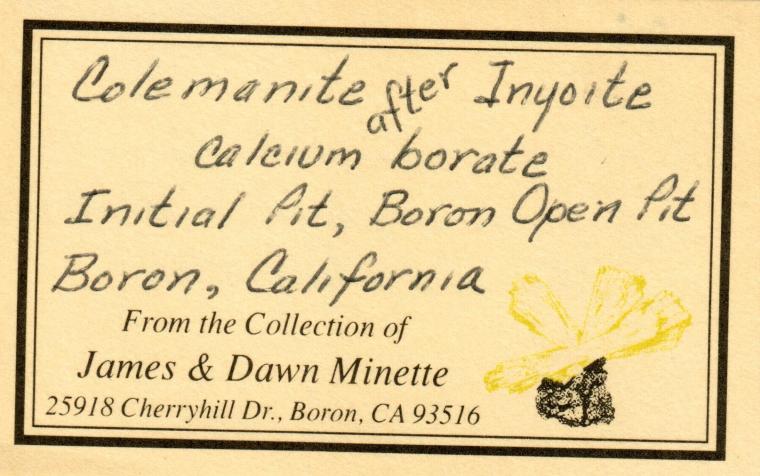 Colemanite after Inyoite
calcium borate
Initial Pit, Boron Open Pit
Boron, California
From the Collection of
James & Dawn Minette
25918 Cherryhill Dr., Boron, CA 93516